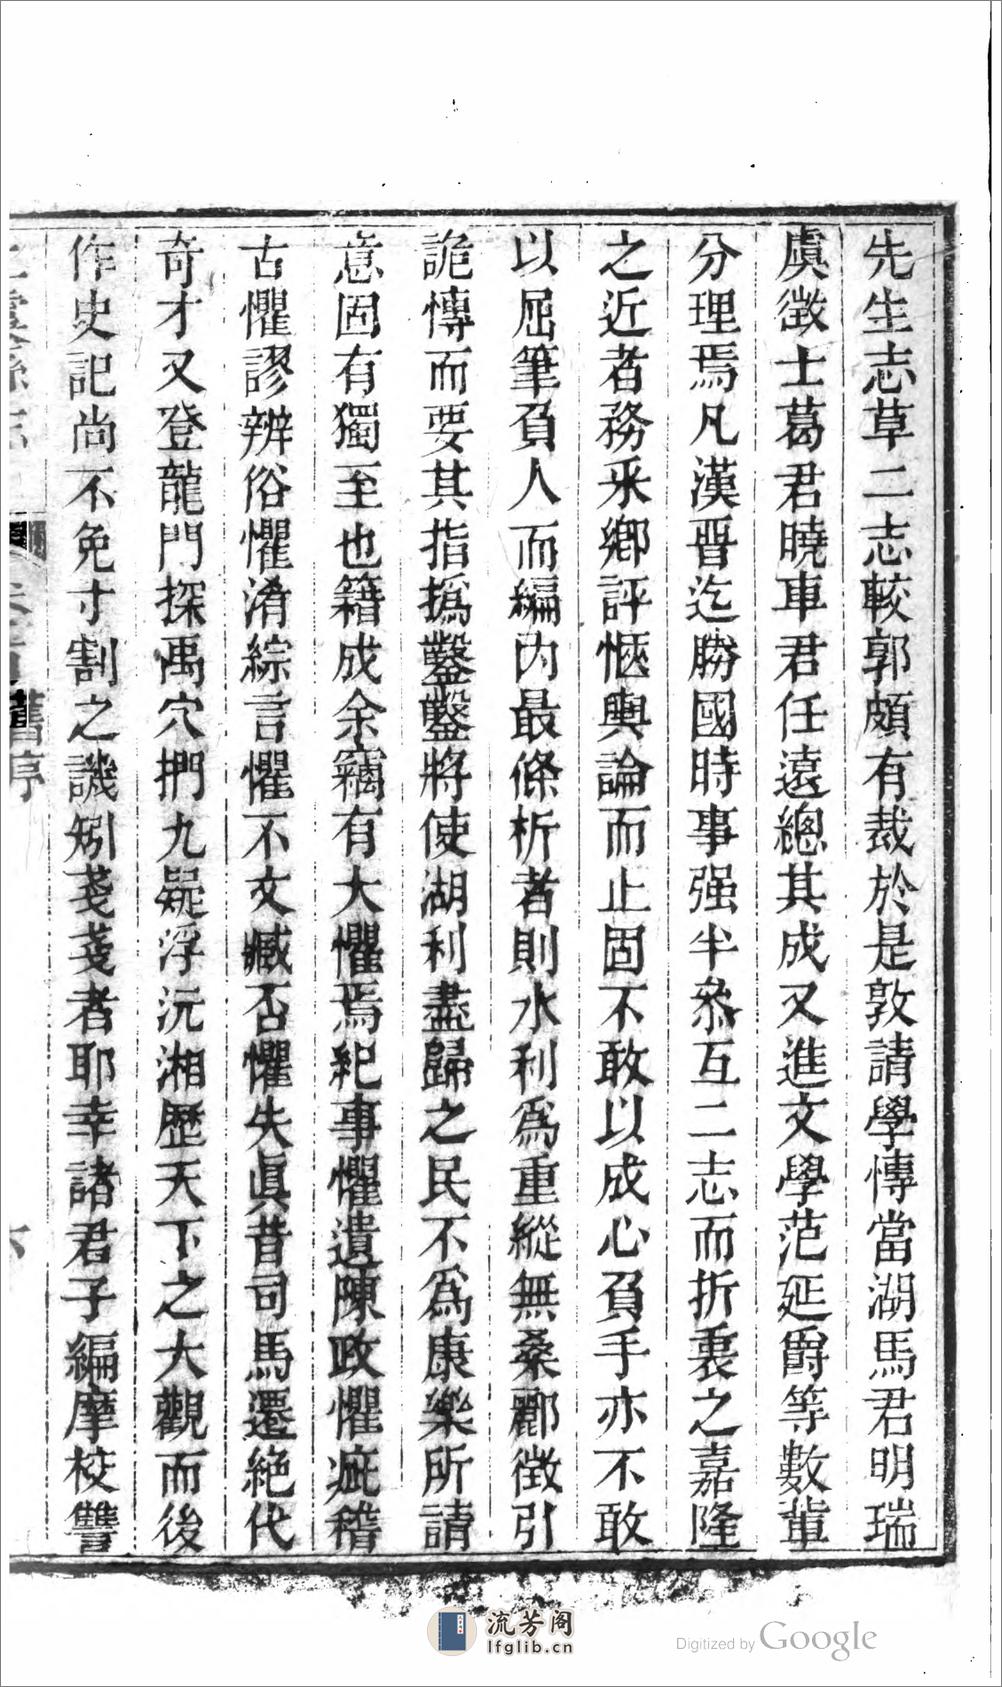 先生志草二志較郭頗有裁於是敦請學愽當湖馬君明瑞
虞徴士葛君曉車君任遠總其成又進文學范延爵等數軰
分理焉凡漢晋迄勝國時事强半叅互二志而折衷之嘉隆
之近者務采鄉評愜輿論而止固不敢以成心負手亦不敢
以屈筆負人而編内最條析者則水利爲重縱無桑酈徴引
詭愽而要其指撝鑿鑿將使湖利盡歸之民不爲康樂所請
意固有獨至也籍成余竊有大懼焉紀事懼遺陳政懼疵稽
古懼謬辨俗懼淆綜言懼不文臧否懼失眞昔司馬遷絶代
奇才又登龍門探禹穴捫九疑浮沅湘歷天下之大觀而後
作史記尚不免寸割之譏矧戔戔者耶幸諸君子編摩校讐
舊序
流芳阁
lfglib.cn
Digitized by Google